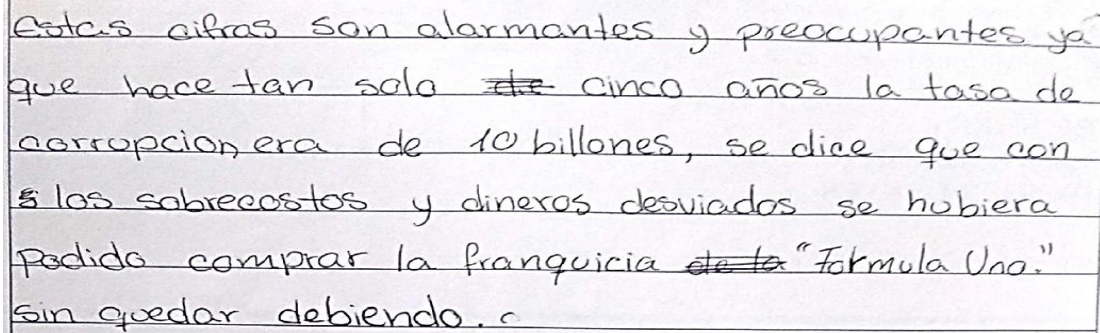 Estas cifras son alarmantes y preocupantes ya
que hace tan solo cinco años la tasa de
corrupcion era de 10 billones, se dice que con
los sobrecostos y dineros desviados se hubiera
podido comprar la franquicia "Formula Uno."
sin quedar debiendo.